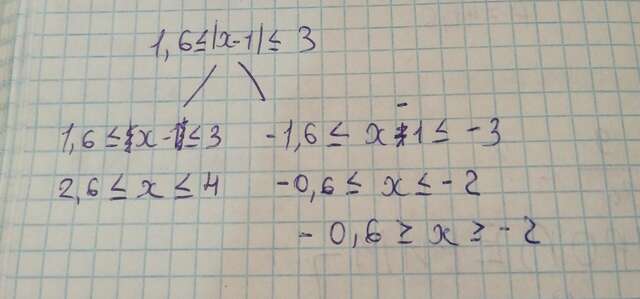 1,6≤|x-1|≤ 3
1,6 ≤ x - 1 ≤ 3
-1,6 ≤ x - 1 ≤ -3
2,6 ≤ x ≤ 4
-0,6 ≤ x ≤ -2
- 0,6 ≥ x ≥ -2